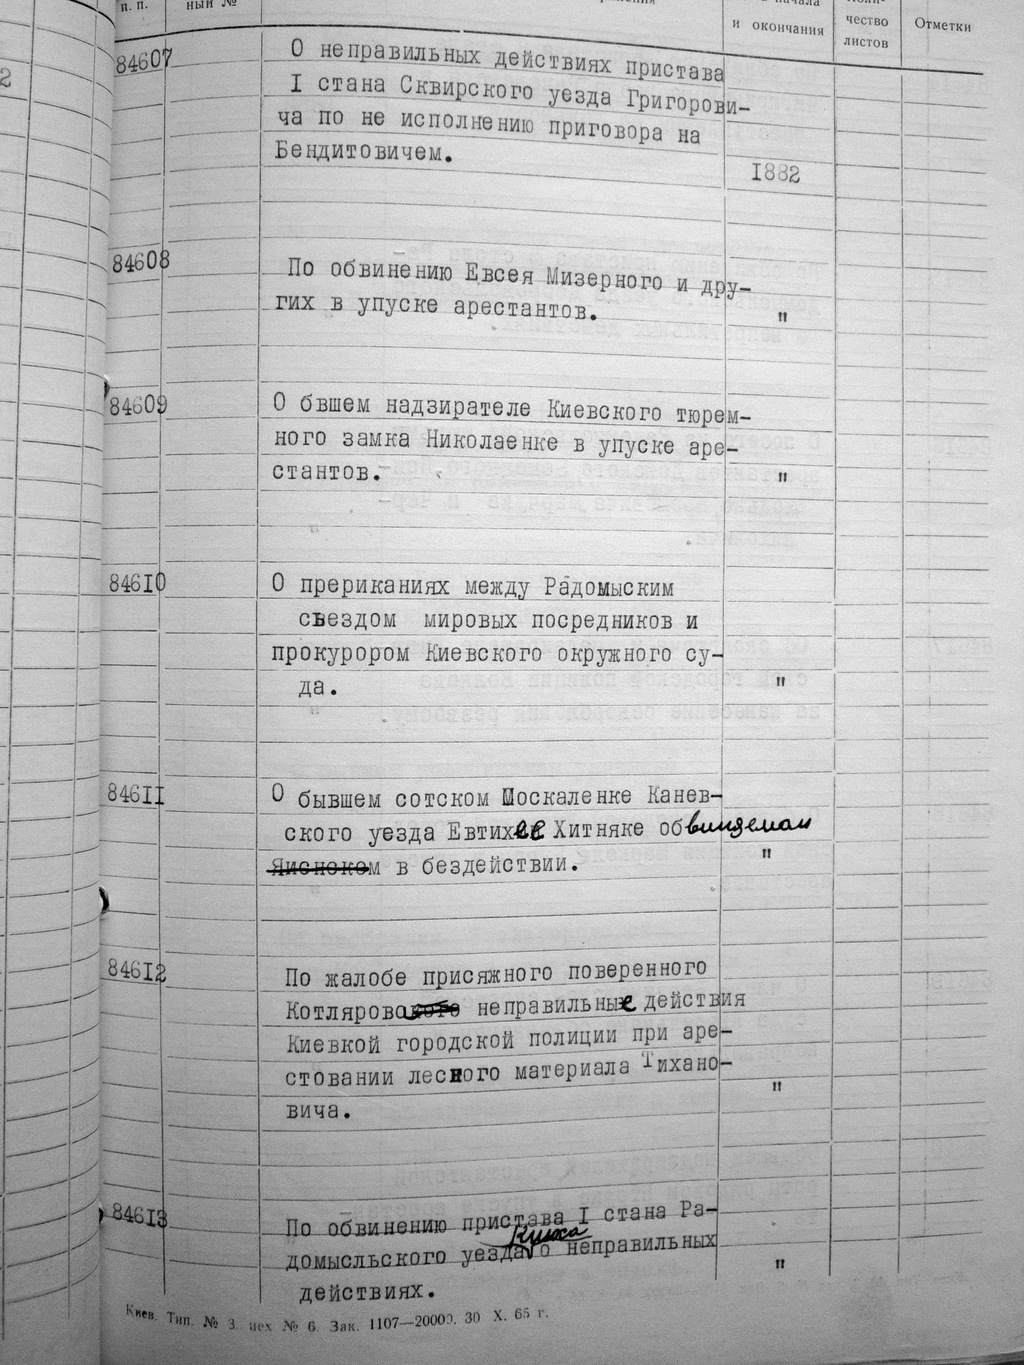 п. п.
ный №
начала
и окончания
чество
листов
Отметки
84607
О неправильных действиях пристава
I стана Сквирского уезда Григорови-
ча по не исполнению приговора на
Бендитовичем.
I882
84608
По обвинению Евсея Мизерного и дру-
гих в упуске арестантов.
"
84609
О бвшем надзирателе Киевского тюрем-
ного замка Николаенке в упуске аре-
стантов.
"
84610
О прериканиях между Радомыским
съездом мировых посредников и
прокурором Киевского окружного су-
да.
"
84611
О бывшем сотском Москаленке Канев-
ского уезда Евтихее Хитняке обвиняемом
в бездействии.
"
84612
По жалобе присяжного поверенного
Котлярово неправильные действия
Киевкой городской полиции при аре-
стовании лесного материала Тихано-
вича.
"
84613
По обвинению пристава I стана Ра-
домысльского уезда о неправильных
действиях.
"
Киев. Тип. № 3. цех № 6. Зак. 1107—20000. 30 X. 65 г.